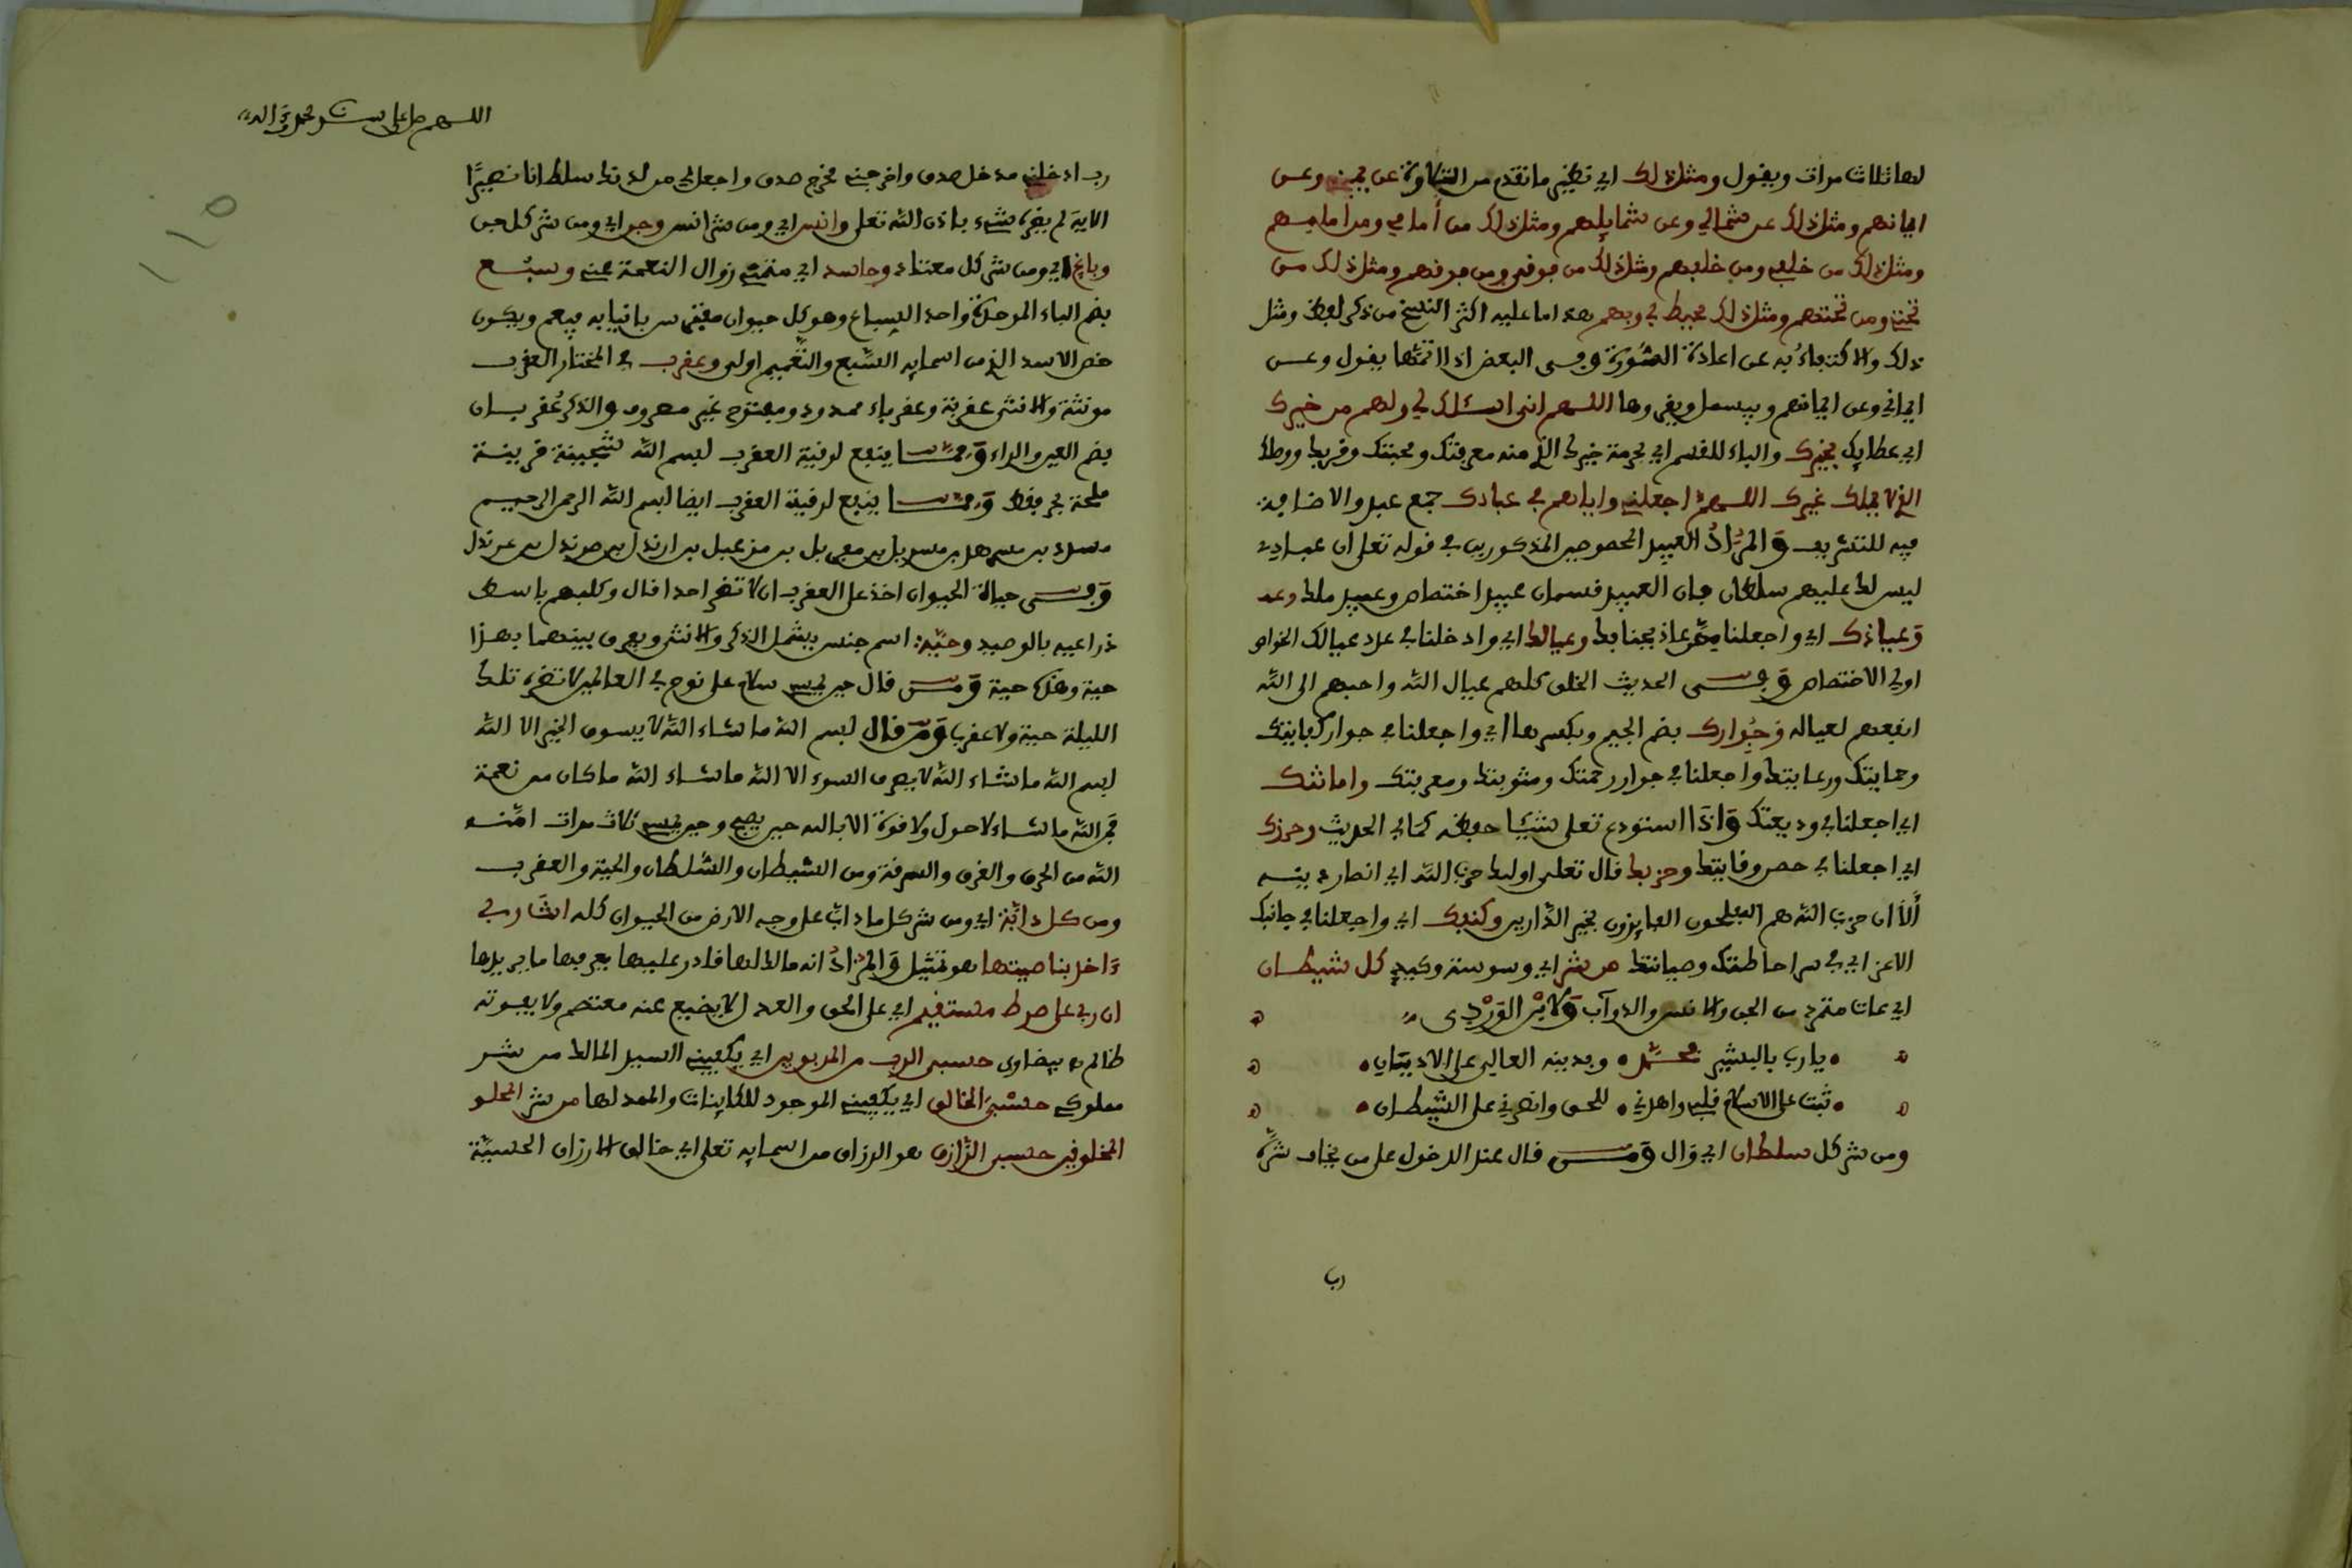 لها ثلاث مرات ويقول ومثل ذلك اي نظير ما تقدم من التلاوة عن يميني وعن
ايمانهم ومثل ذلك عن شمالي وعن شمايلهم ومثل ذلك من أمامي ومن امامهم
ومثل ذلك من خلفي ومن خلفهم ومثل ذلك من فوقي ومن فوقهم ومثل ذلك من
تحتي ومن تحتهم ومثل ذلك محيط بي وبهم هذا ما عليه اكثر النسخ من ذكر لفظ ومثل
ذلك والاكتفاء به عن اعادة السورة وفي البعض اذا اتمها يقول وعن
ايماني وعن ايمانهم ويبسمل ويقروها اللهم اني اسئلك لي ولهم من خيرك
اي عطايك بخيرك والباء للقسم اي بحرمة خيرك الذي منه معرفتك ومحبتك وقربك
الذي لا يملك غيرك اللهم اجعلني واياهم في عبادك جمع عبد والاضافة
فيه للتشريف والمراد العبيد المخصوصين المذكورين في قوله تعلى ان عبادي
ليس لك عليهم سلطان فان العبيد قسمان عبيد اختصاص وعبيد ملك
وعياذك اي واجعلنا ممن عاذ بجنابك وعيالك اي وادخلنا في عدد عيالك الخواص
اولي الاختصاص وفي الحديث الخلق كلهم عيال الله واحبهم الى الله
انفعهم لعياله وجوارك بضم الجيم وبكسرها اي واجعلنا في جوار كفايتك
وحمايتك ورعايتك واجعلنا في جوار رحمتك ومثوبتك ومعرفتك وامانتك
اي اجعلنا في وديعتك واذا استودع تعلى شيئا حفظه كما في الحديث وحرزك
اي اجعلنا في حصن وقايتك وحزبك قال تعلى اولئك حزب الله اي انصار دينه
ألا ان حزب الله هم المفلحون الفايزون بخير الدارين وكنفك اي واجعلنا في جانبك
الاعز اي في احاطتك وصيانتك من شر اي وسوسة وكيد كل شيطان
اي عات متمرد من الجن والانس والدواب ولابن الوردي
يا رب بالبشير محمد وبدينه العالي على الاديان
ثبت على الاسلام قلبي واهدني للحق وانصرني على الشيطان
ومن شر كل سلطان اي وال ومن قال عند الدخول على من يخاف شره
رب
اللهم صل على سيدنا محمد واله
رب ادخلني مدخل صدق واخرجني مخرج صدق واجعل لي من لدنك سلطانا نصيرا
الاية لم يضره شيء باذن الله تعلى وانس اي ومن شر انس وجن اي ومن شر كل جن
وباغ اي ومن شر كل معتداء وحاسد اي متمني زوال النعمة عني وسبع
بضم الباء الموحدة واحد السباع وهو كل حيوان مفترس بانيابه فيعم ويكون
خص الاسد الذي من اسمايه السبع والتعميم اولى وعقرب في المختار العقرب
مونثة والانثى عقربة وعقرباء ممدود ومفتوح غير مصروف والذكر عقربان
بضم العين والراء ومما ينفع لرقية العقرب بسم الله شجينة قرينة
ملحة بحر ومما ينفع لرقية العقرب ايضا بسم الله الرحمن الرحيم
وفي حياة الحيوان اخذ على العقرب ان لا تضر احدا قال وكلبهم باسط
ذراعيه بالوصيد وحية اسم جنس يشمل الذكر والانثى ويفرق بينهما بهذا
حية وهذه حية ومن قال حين يمسي سلام على نوح في العالمين لا تضره تلك
الليلة حية ولا عقرب ومن قال بسم الله ما شاء الله لا يسوق الخير الا الله
بسم الله ما شاء الله لا يصرف السوء الا الله ما شاء الله ما كان من نعمة
فمن الله ما شاء لا حول ولا قوة الا بالله حين يصبح وحين يمسي ثلاث مرات امنه
الله من الحرق والغرق والسرقة ومن الشيطان والسلطان والحية والعقرب
ومن كل دابة اي ومن شر كل ما داب على وجه الارض من الحيوان كله انت ربي
ءاخذ بناصيتها هو تمثيل والمراد انه مالك لها قادر عليها يصرفها ما يريدها
ان ربي على صرط مستقيم اي على الحق والعدل لا يضيع عنه معتصم ولا يفوته
ظالم بيضاوي حسبي الرب من المربوبين اي يكفيني السيد المالك من شر
مملوكه حسبي الخالق اي يكفيني الموجود للكاينات والممد لها من شر المخلو
المخلوقين حسبي الرازق هو الرزاق من اسمايه تعلى اي خالق الارزاق الحسية